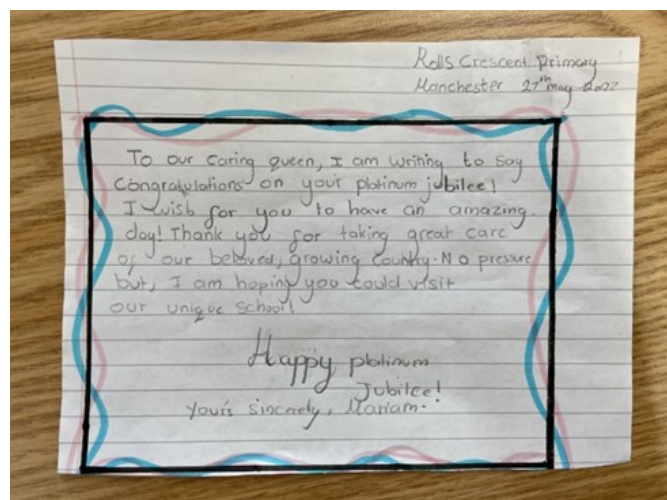 Rolls Crescent Primary
Manchester 27th May 2022
To our caring queen, I am writing to say
Congratulations on your platinum jubilee!
I wish for you to have an amazing
day! Thank you for taking great care
of our beloved, growing country. No pressure
but, I am hoping you could visit
our unique school!
Happy platinum
Jubilee!
Yours sincerely, Mariam.